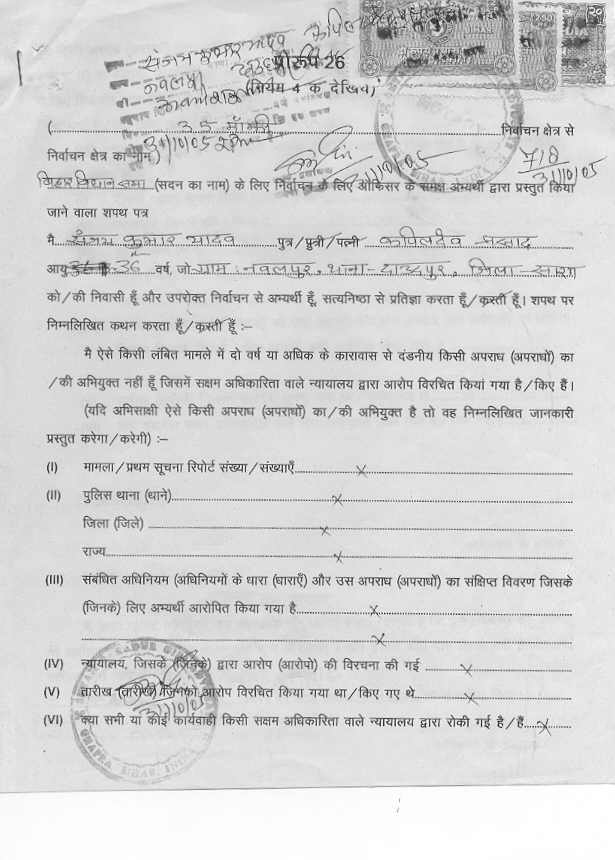 संजय कुमार यादव
प्रारूप 26
(नियम 4 क देखिये)
(........ 35 माँझी ........ निर्वाचन क्षेत्र से
निर्वाचन क्षेत्र का नाम)
31/10/05
31/10/05
718
31/10/05
बिहार विधान सभा (सदन का नाम) के लिए निर्वाचन के लिए ऑफिसर के समक्ष अभ्यर्थी द्वारा प्रस्तुत किया
जाने वाला शपथ पत्र
मै संजय कुमार यादव पुत्र/पुत्री/पत्नी कपिलदेव प्रसाद
आयु 36 वर्ष, जो ग्राम: नवलपुर, थाना-दाउदपुर, जिला-सारण
को/की निवासी हूँ और उपरोक्त निर्वाचन से अभ्यर्थी हूँ, सत्यनिष्ठा से प्रतिज्ञा करता हूँ/करती हूँ। शपथ पर
निम्नलिखित कथन करता हूँ/करती हूँ :–
मै ऐसे किसी लंबित मामले में दो वर्ष या अधिक के कारावास से दंडनीय किसी अपराध (अपराधों) का
/की अभियुक्त नहीं हूँ जिसमें सक्षम अधिकारिता वाले न्यायालय द्वारा आरोप विरचित किया गया है/किए हैं।
(यदि अभिसाक्षी ऐसे किसी अपराध (अपराधों) का/की अभियुक्त है तो वह निम्नलिखित जानकारी
प्रस्तुत करेगा/करेगी) :–
(I) मामला/प्रथम सूचना रिपोर्ट संख्या/संख्याएँ ........ x ........
(II) पुलिस थाना (थाने) ........ x ........
जिला (जिले) ........ x ........
राज्य ........ x ........
(III) संबंधित अधिनियम (अधिनियमों के धारा (धाराएँ) और उस अपराध (अपराधों) का संक्षिप्त विवरण जिसके
(जिनके) लिए अभ्यर्थी आरोपित किया गया है ........ x ........
........ x ........
(IV) न्यायालय, जिसके (जिनके) द्वारा आरोप (आरोपो) की विरचना की गई ........ x ........
(V) तारीख (तारीखें) जिनको आरोप विरचित किया गया था/किए गए थे ........ x ........
31/10/05
(VI) क्या सभी या कोई कार्यवाही किसी सक्षम अधिकारिता वाले न्यायालय द्वारा रोकी गई है/हैं.... x